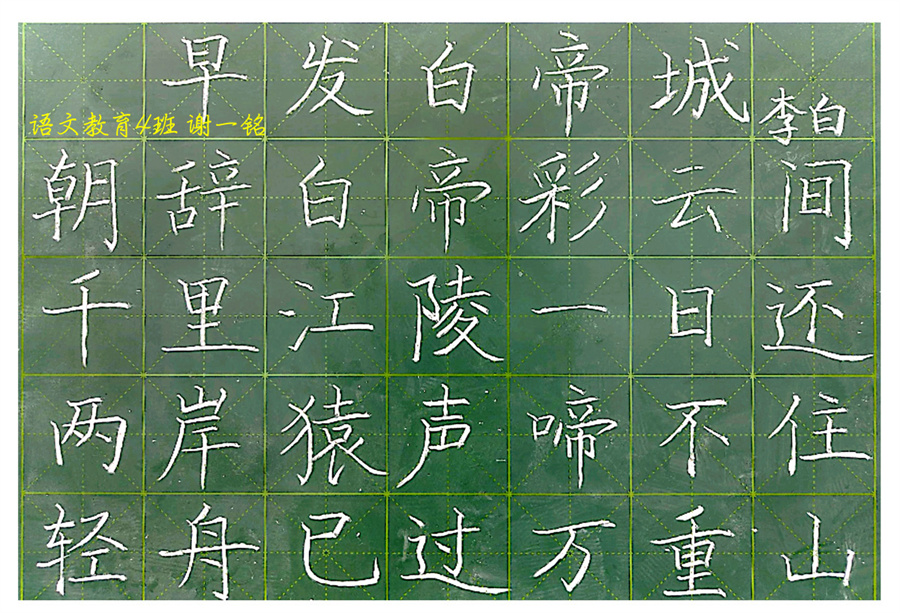 早发白帝城
李白
语文教育4班 谢一铭
朝辞白帝彩云间
千里江陵一日还
两岸猿声啼不住
轻舟已过万重山